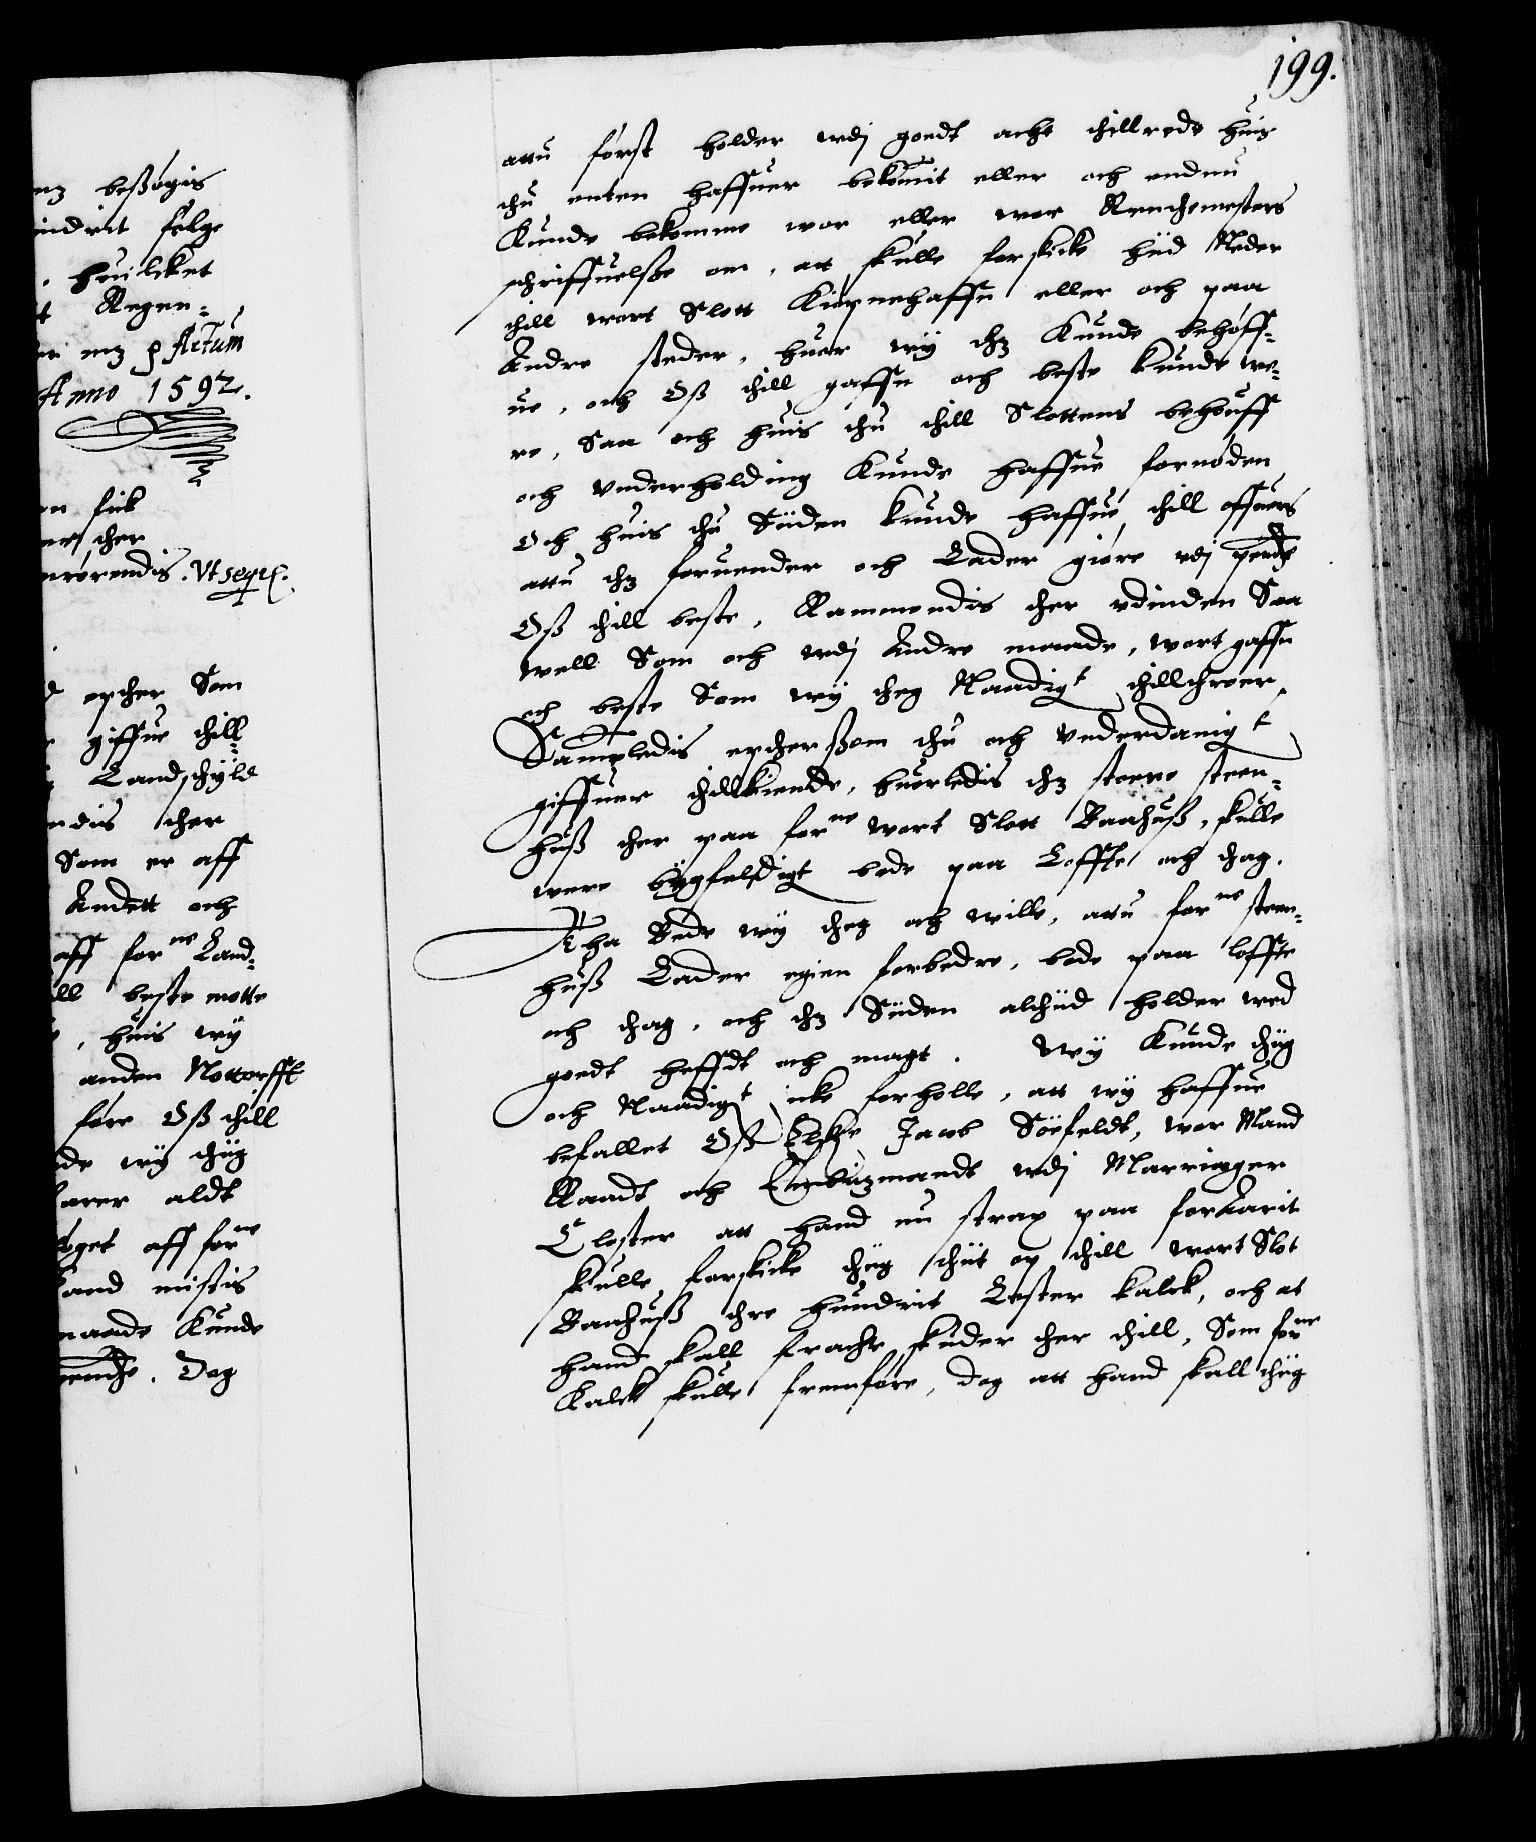 199.
attu først holder wdj goedt acht thillrede huis
thu enten haffuer bekomit eller och endnu
Kunde bekomme wor eller wor Rentemesters
schriffuelße om, att skulle forskicke hiid Neder
thill wort Slott Kiøpnehaffn eller och paa
Andre steder, huor wy thz Kunde behøff-
ue, och Oß thill gaffn och beste kunde we-
re, Saa och huis thu thill Slottens behouff
och Vnderholding Kunde haffue fornøden
Och huis thu Siiden kunde haffue thill offuers
attu thz foruender och Lader giøre wdj penge
Oß thill beste, Rammendis ther vdinden Saa
well Som och wdj Andre maade, wort gaffn
och beste Som wy theg Naadigt thillthroer
Sampledis epther ßom thu och Vnderdanigt
giffuer thillkiende, huorledis thz støere steen-
huß ther paa forne wort Slott Baahuß, skulle
were bygfeldigt bode paa Loffte och thag.
Tha Bede wy theg och wille, attu forne steen-
huß Lader egien forbedre, bode paa loffte
och thag, och thz Siiden althiid holder wed
goedt heffdt och magt. Wy Kunde thiig
och Naadigt icke forholle, att wy haffue
befallet Oß Elske Jacob Søefeldt, wor Mand
Raadt och Embitzmandt wdj Marriager
Closter att hand nu strax paa forAarit
skulle forskicke thiig thiit op thill wort Slot
Baahuß thre hundrit Lester kalck, och at
hand skall fracht skuder ther thill, Som forne
Kalck skulle fremføre, dog att hand skall thiig
mz beßøgis
indret følge
, huilcket
Regen-
mz p Actum
Anno 1592.
fick
ther
rørendis. Vt seqr.
epther Som
giffue thill
Landschyld
ndis ther
Som er aff
Andett och
aff forne Land-
ll beste motte
, huis wy
anden Nottorfft
føre Oß thill
de wy thiig
arer aldt
aff forne
and mistis
maade Kunde
penge. Dog